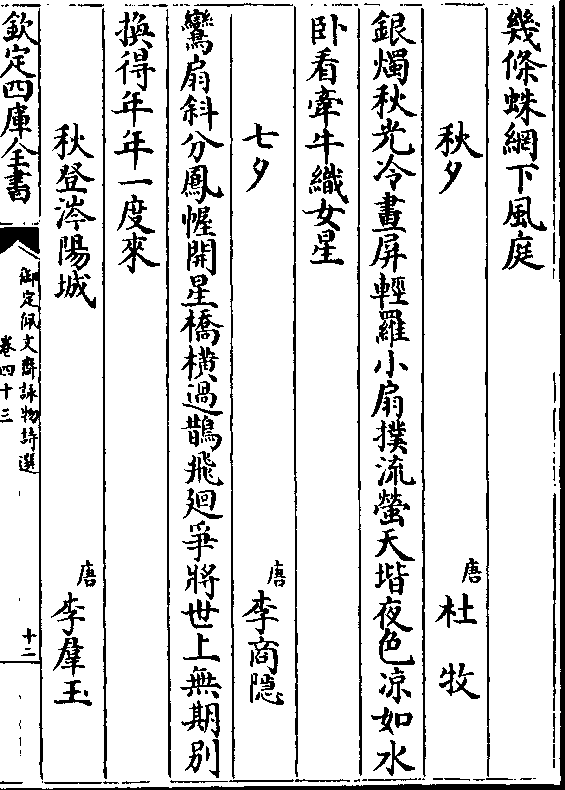 幾條蛛網下風庭
秋夕
唐
杜牧
銀燭秋光冷畫屏輕羅小扇撲流螢天堦夜色凉如水
卧看牽牛織女星
七夕
唐
李商隠
鸞扇斜分鳳幄開星橋橫過鵲飛廻爭將世上無期别
換得年年一度來
秋登涔陽城
唐
李羣玉
欽定四庫全書
御定佩文齋詠物詩選
卷四十三
十二